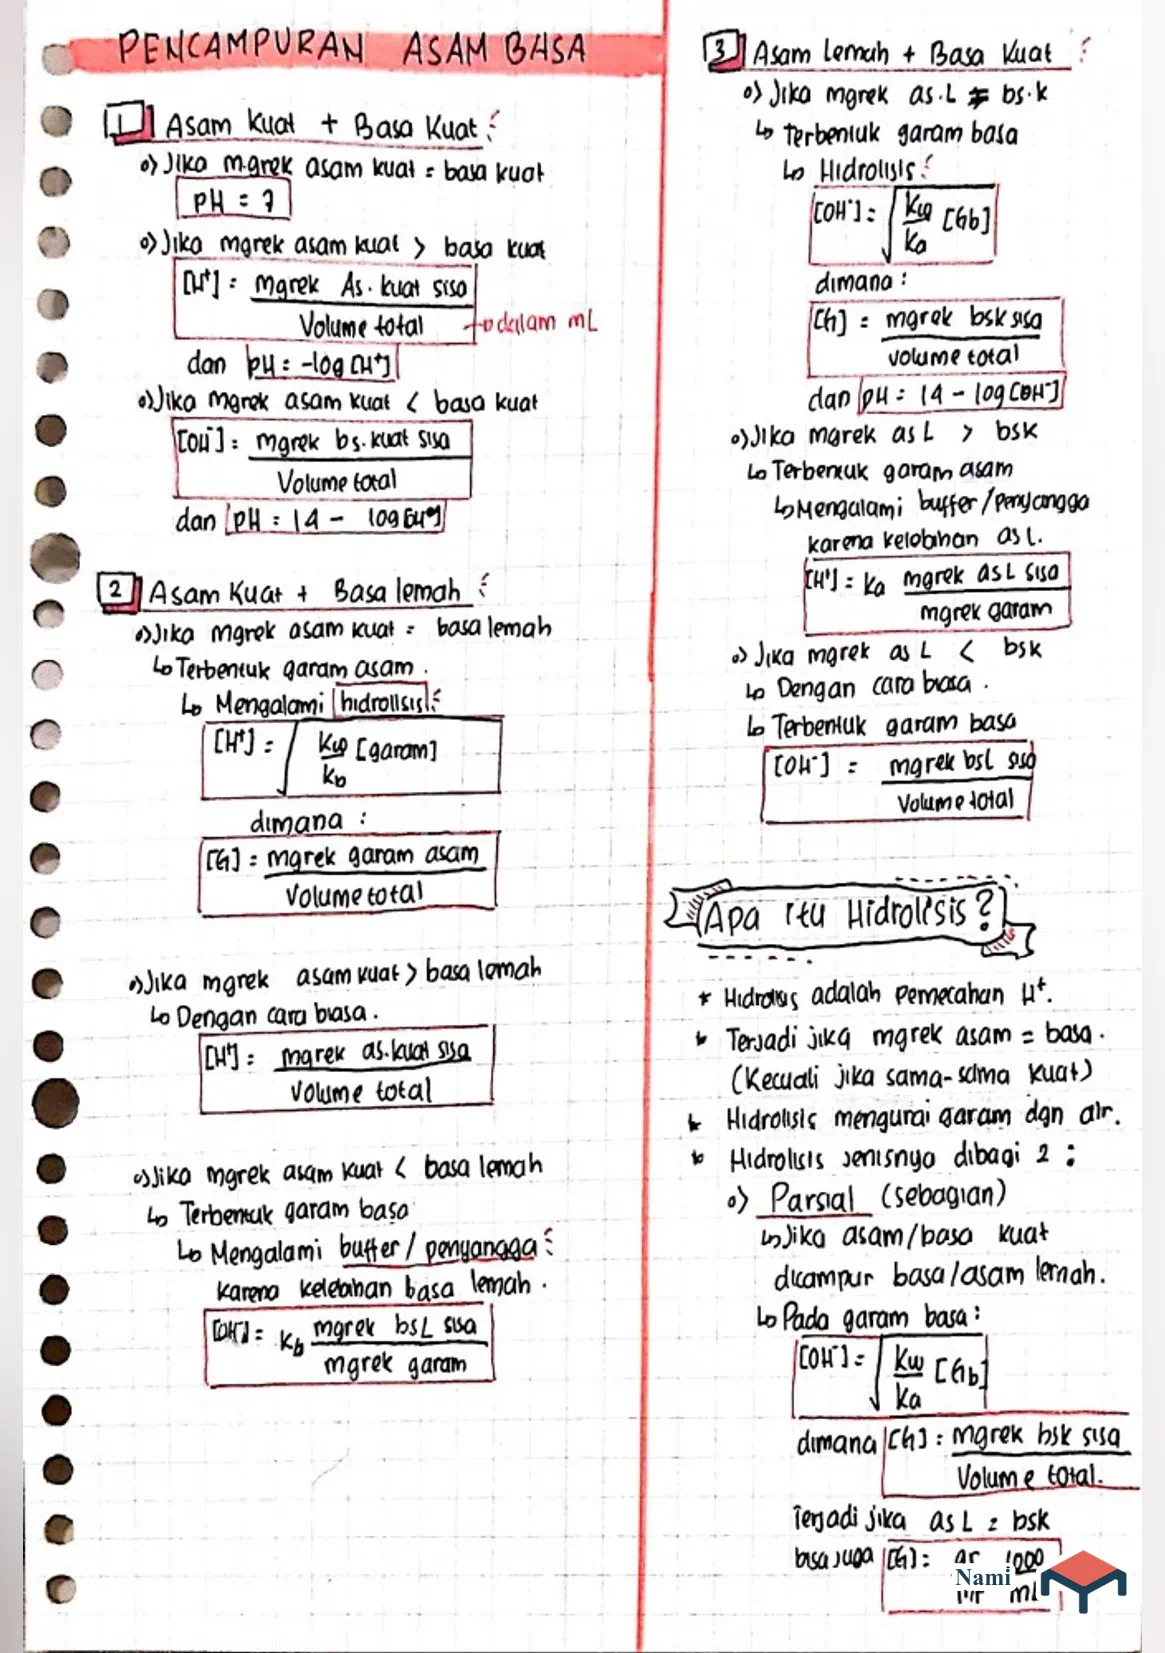 PENCAMPURAN ASAM BASA
1 Asam Kuat + Basa Kuat :
o) Jika mgrek asam kuat = basa kuat
pH = 7
o) Jika mgrek asam kuat > basa kuat
[H⁺] = mgrek As. kuat sisa
Volume total → dalam mL
dan pH = -log [H⁺]
o) Jika mgrek asam kuat < basa kuat
[OH⁻] = mgrek bs. kuat sisa
Volume total
dan pH = 14 - log
2 Asam Kuat + Basa lemah :
o) Jika mgrek asam kuat = basa lemah
↳ Terbentuk garam asam.
↳ Mengalami hidrolisis :
[H⁺] = √ Kw [garam]
Kb
dimana :
[G] = mgrek garam asam
Volume total
o) Jika mgrek asam kuat > basa lemah
↳ Dengan cara biasa.
[H⁺] = mgrek as. kuat sisa
Volume total
o) Jika mgrek asam kuat < basa lemah
↳ Terbentuk garam basa
↳ Mengalami buffer / penyangga :
karena kelebihan basa lemah.
[OH⁻] = Kb mgrek bsL sisa
mgrek garam
3 Asam Lemah + Basa Kuat :
o) Jika mgrek as.L = bs.k
↳ Terbentuk garam basa
↳ Hidrolisis :
[OH⁻] = √ Kw [Gb]
Ka
dimana :
[G] = mgrek bsk sisa
volume total
dan pH = 14 - log [OH⁻]
o) Jika mgrek as L > bsk
↳ Terbentuk garam asam
↳ Mengalami buffer / penyangga
karena kelebihan as L.
[H⁺] = Ka mgrek asL sisa
mgrek garam
o) Jika mgrek as L < bsk
↳ Dengan cara biasa.
↳ Terbentuk garam basa
[OH⁻] = mgrek bsl sisa
Volume total
Apa itu Hidrolisis ?
* Hidrolisis adalah pemecahan H⁺.
* Terjadi jika mgrek asam = basa.
(Kecuali jika sama-sama kuat)
* Hidrolisis mengurai garam dgn air.
* Hidrolisis jenisnya dibagi 2 :
o) Parsial (sebagian)
↳ Jika asam/basa kuat
dicampur basa/asam lemah.
↳ Pada garam basa :
[OH⁻] = √ Kw [Gb]
Ka
dimana [G] = mgrek bsk sisa
Volume total.
Terjadi jika as L = bsk
bisa juga [G] = gr 1000
mr mL
Nami